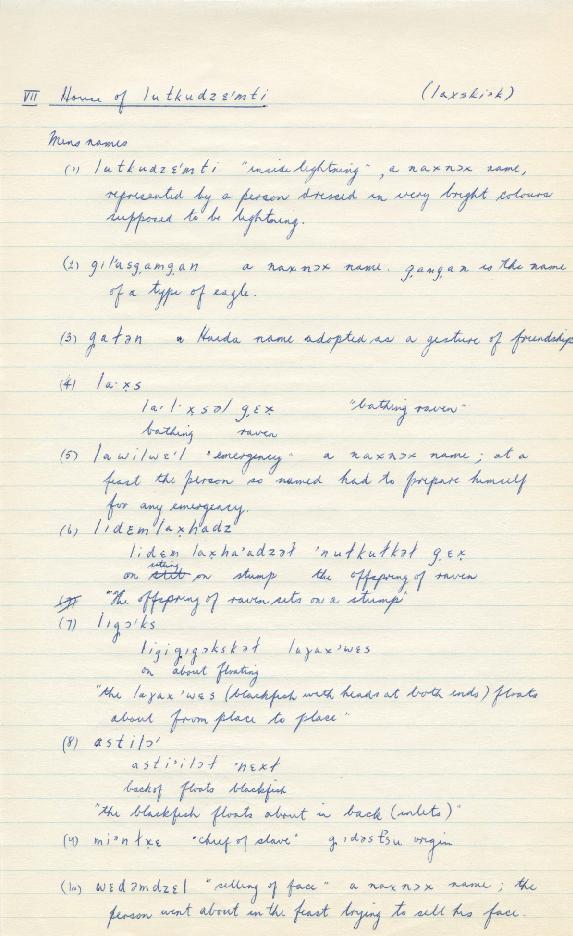 VII House of lutkudzɛ'mti (laxski·k)
Mens names
(1) lutkudzɛ'mti "inside lightning", a naxnɔx name,
represented by a person dressed in very bright colours
supposed to be lightning.
(2) gil'asgamgan a naxnɔx name. gangan is the name
of a type of eagle.
(3) a Haida name adopted as a gesture of friendship
(4) la·x̣s
gɛx̣ "bathing raven"
bathing raven
(5) lawilwɛ'l "emergency" a naxnɔx name; at a
feast the person so named had to prepare himself
for any emergency.
(6) lidɛm laxhadz
lidɛm laxha'adzət 'nutkutkət gɛx̣
sitting
on on stump the offspring of raven
"The offspring of raven sits on a stump"
(7) ligɔ'ks
ligigigɔkskət lagax'wɛs
on about floating
"the lagax'wɛs (blackfish with heads at both ends) floats
about from place to place"
(8) astilɔ'
asti'ilɔt 'nɛxt
back of floats blackfish
"the blackfish floats about in back (inlets)"
(9) "chief of slave" origin
(10) wɛdəmdzɛl "selling of face" a naxnɔx name; the
person went about in the feast trying to sell his face.